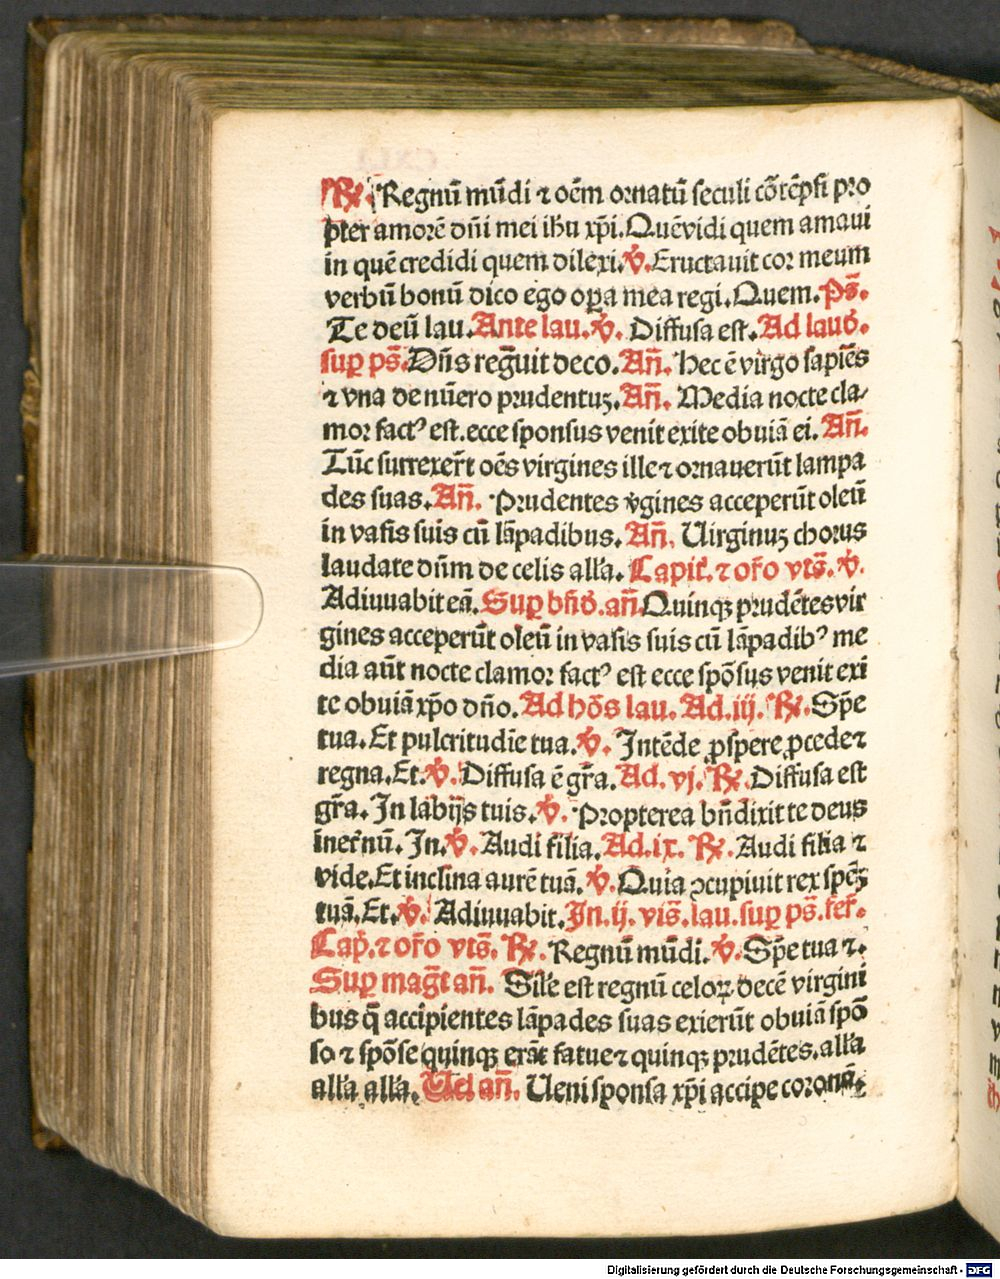 R̃. Regnū mūdi ⁊ oēm ornatū seculi cōtēpsi pro
pter amorē dñi mei ihu xp̄i. Quēvidi quem amaui
in quē credidi quem dilexi. v̄. Eructauit cor meum
verbū bonū dico ego oꝑa mea regi. Quem. Ps̄.
Te deū lau. Ante lau. v̄. Diffusa est. Ad laud̄.
suꝑ ps̄. Dñs regūit deco. Añ. Hec ē virgo sapiēs
⁊ vna de nūero prudentuꝫ. Añ. Media nocte cla⸗
mor factꝰ est. ecce sponsus venit exite obuiā ei. Añ.
Tūc surrexer̄t oēs virgines ille ⁊ ornauerūt lampa
des suas. Añ. Prudentes v̄gines acceperūt oleū
in vasis suis cū lāpadibus. Añ. Uirginuꝫ chorus
laudate dñm de celis all'a. Capit̄. ⁊ or̄o vts̄. v̄.
Adiuuabit eā. Suꝑ bñd̄. añ. Quinqꝫ prudētes vir
gines acceperūt oleū in vasis suis cū lāpadibꝰ me
dia aūt nocte clamor factꝰ est ecce spōsus venit exi
te obuiā xp̄o dño. Ad hōs lau. Ad. iij. R̃. Sp̄e
tua. Et pulcritudīe tua. v̄. Intēde ꝓspere ꝓcede ⁊
regna. Et. v̄. Diffusa ē gr̄a. Ad. vj. R̃. Diffusa est
gr̄a. In labijs tuis. v̄. Propterea bñdixit te deus
ineter̄nū. In. v̄. Audi filia. Ad. ix. R̃. Audi filia ⁊
vide. Et inclina aurē tuā. v̄. Quia ↄcupiuit rex spēꝫ
tuā. Et. v̄. Adiuuabit. In. ij. vis̄. lau. suꝑ ps̄. fer̄.
Cap̄. ⁊ or̄o vts̄. R̃. Regnū mūdi. v̄. Sp̄e tua ⁊.
Suꝑ maḡt añ. Sil'e est regnū celoꝝ decē virgini
bus q̄ accipientes lāpades suas exierūt obuiā spō
so ⁊ spōse quinqꝫ erāt fatue ⁊ quinqꝫ prudētes. all'a
all'a all'a. Uel añ. Ueni sponsa xp̄i accipe coronā.
Digitalisierung gefördert durch die Deutsche Forschungsgemeinschaft - DFG